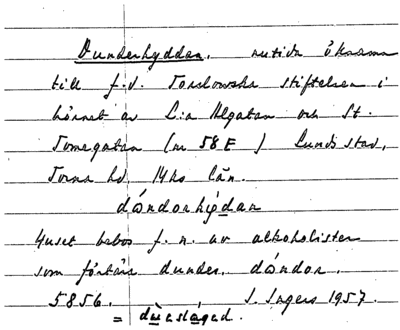 Dunderhyddan, nutida öknamn
till f.d. Torslowska stiftelsen i
hörnet av L:a Algatan och St.
Tomegatan (nr 58 E ) Lunds stad,
Torna hd Mhs län.
dóndorhýdan
Huset bebos f.n. av alkoholister
som förtära dunder, dóndor.
5856. S. Ingers 1957.
=